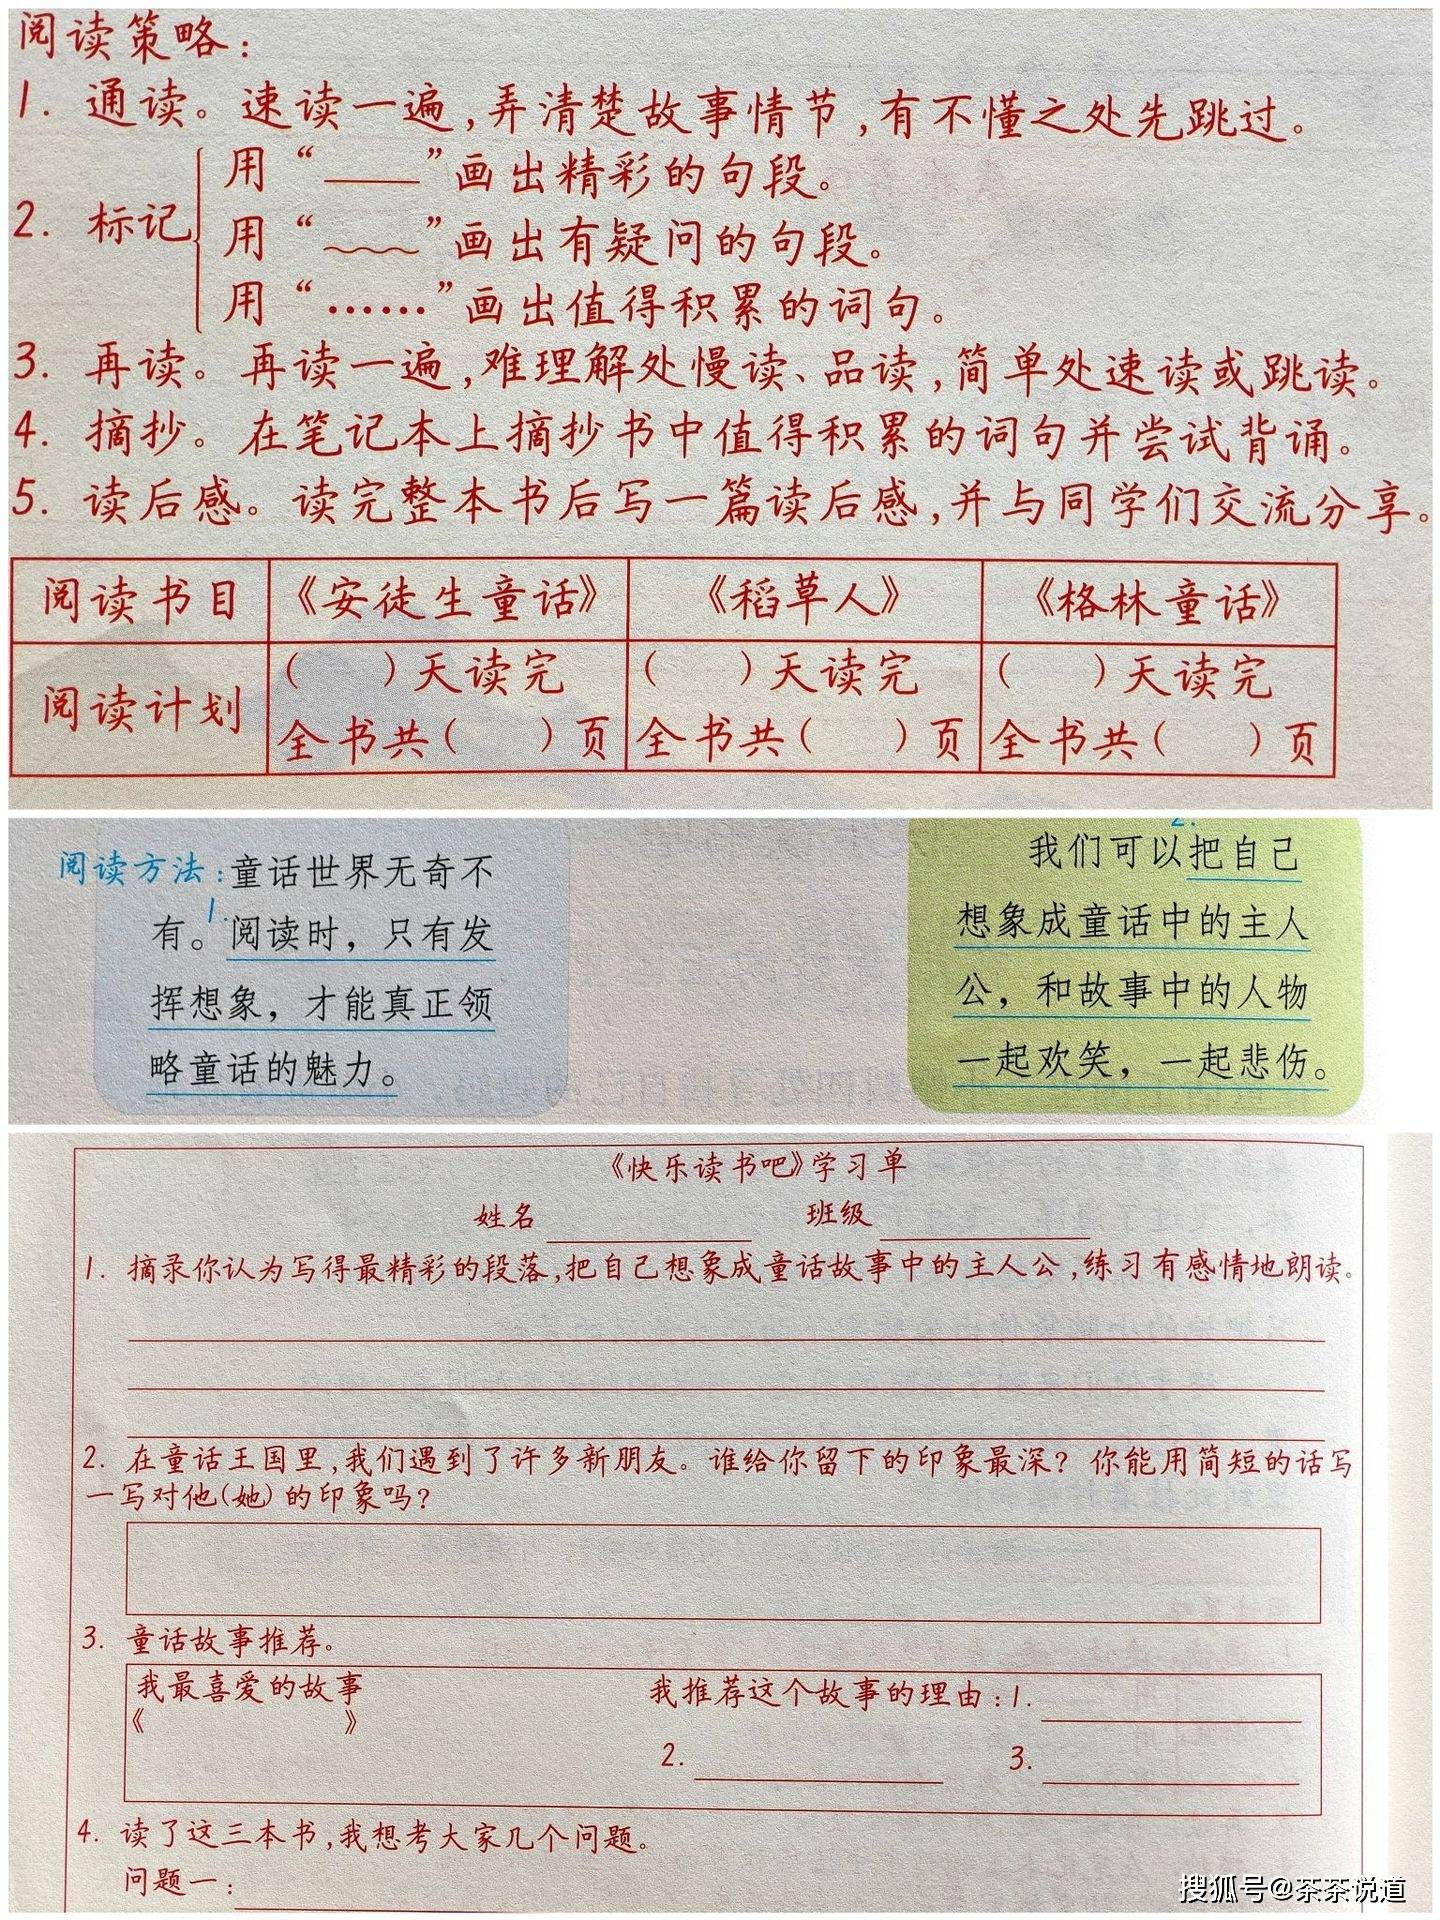 阅读策略：
1. 通读。速读一遍，弄清楚故事情节，有不懂之处先跳过。
2. 标记
用“——”画出精彩的句段。
用“﹏﹏”画出有疑问的句段。
用“……”画出值得积累的词句。
3. 再读。再读一遍，难理解处慢读、品读，简单处速读或跳读。
4. 摘抄。在笔记本上摘抄书中值得积累的词句并尝试背诵。
5. 读后感。读完整本书后写一篇读后感，并与同学们交流分享。
阅读书目 《安徒生童话》 《稻草人》 《格林童话》
阅读计划
（ ）天读完 （ ）天读完 （ ）天读完
全书共（ ）页 全书共（ ）页 全书共（ ）页
阅读方法：童话世界无奇不
有。1.阅读时，只有发
挥想象，才能真正领
略童话的魅力。
2.
我们可以把自己
想象成童话中的主人
公，和故事中的人物
一起欢笑，一起悲伤。
《快乐读书吧》学习单
姓名 班级
1. 摘录你认为写得最精彩的段落，把自己想象成童话故事中的主人公，练习有感情地朗读。
2. 在童话王国里，我们遇到了许多新朋友。谁给你留下的印象最深？你能用简短的话写
一写对他（她）的印象吗？
3. 童话故事推荐。
我最喜爱的故事 我推荐这个故事的理由：1.
《 》
2. 3.
4. 读了这三本书，我想考大家几个问题。
问题一：
搜狐号@茶茶说道